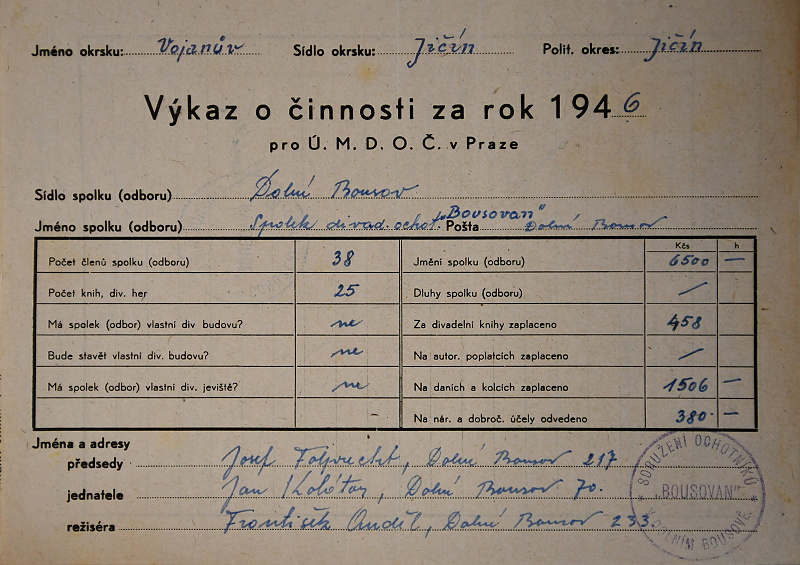 Jméno okrsku: Vojanův Sídlo okrsku: Jičín Polit. okres: Jičín
Výkaz o činnosti za rok 1946
pro Ú. M. D. O. Č. v Praze
Sídlo spolku (odboru) Dolní Bousov
Jméno spolku (odboru) Spolek divad. ochot. „Bousovan“ Pošta Dolní Bousov
Kčs h
Počet členů spolku (odboru) 38 Jmění spolku (odboru) 6500 —
Počet knih, div. her 25 Dluhy spolku (odboru) /
Má spolek (odbor) vlastní div budovu? ne Za divadelní knihy zaplaceno 458
Bude stavět vlastní div. budovu? ne Na autor. poplatcích zaplaceno /
Má spolek (odbor) vlastní div. jeviště? ne Na daních a kolcích zaplaceno 1506 —
Na nár. a dobroč. účely odvedeno 380 —
Jména a adresy
předsedy Josef Dolní Bousov 217
jednatele Jan Dolní Bousov 70.
režiséra František Anděl, Dolní Bousov 233.
SDRUŽENÍ OCHOTNÍKŮ
„BOUSOVAN“
V DOLNÍM BOUSOVĚ